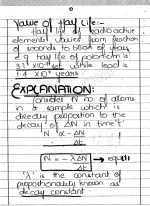 Value of Half Life:-
Half life of radioactive
elements varies from fraction
of seconds to billion of years
e.g half life of polonium is
3.1 × 10⁻⁷ sec while lead is
1.4 × 10¹⁷ years
EXPLANATION:
Consider N no. of atoms
in a sample which is
directly proportion to the
decay of ΔN in time 't'.
N α -ΔN
Δt
N = -λΔN → eq(i)
Δt
'λ' is the constant of
proportionality known as
decay constant